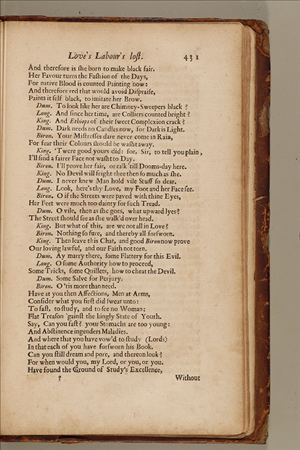 Love's Labour's lost. 431
And therefore is she born to make black fair.
Her Favour turns the Fashion of the Days,
For native Blood is counted Painting now:
And therefore red that would avoid Dispraise,
Paints it self black, to imitate her Brow.
Dum. To look like her are Chimney-Sweepers black?
Long. And since her time, are Colliers counted bright?
King. And Ethiops of their sweet Complexion crack?
Dum. Dark needs no Candles now, for Dark is Light.
Biron. Your Mistresses dare never come in Rain,
For fear their Colours should be washt away.
King. 'Twere good yours did: for, Sir, to tell you plain,
I'll find a fairer Face not washt to Day.
Biron. I'll prove her fair, or talk 'till Dooms-day here.
King. No Devil will fright thee then so much as she.
Dum. I never knew Man hold vile Stuff so dear.
Long. Look, here's thy Love, my Foot and her Face see.
Biron. O if the Streets were paved with thine Eyes,
Her Feet were much too dainty for such Tread.
Dum. O vile, then as she goes, what upward lyes?
The Street should see as she walk'd over head.
King. But what of this, are we not all in Love?
Biron. Nothing so sure, and thereby all forsworn.
King. Then leave this Chat, and good Biron now prove
Our loving lawful, and our Faith not torn.
Dum. Ay marry there, some Flattery for this Evil.
Long. O some Authority how to proceed,
Some Tricks, some Quillets, how to cheat the Devil.
Dum. Some Salve for Perjury.
Biron. O 'tis more than need.
Have at you then Affections, Men at Arms,
Consider what you first did swear unto:
To fast, to study, and to see no Woman:
Flat Treason 'gainst the kingly State of Youth.
Say, Can you fast? your Stomachs are too young:
And Abstinence ingenders Maladies.
And where that you have vow'd to study (Lords)
In that each of you have forsworn his Book.
Can you still dream and pore, and thereon look?
For when would you, my Lord, or you, or you,
Have found the Ground of Study's Excellence,
Without